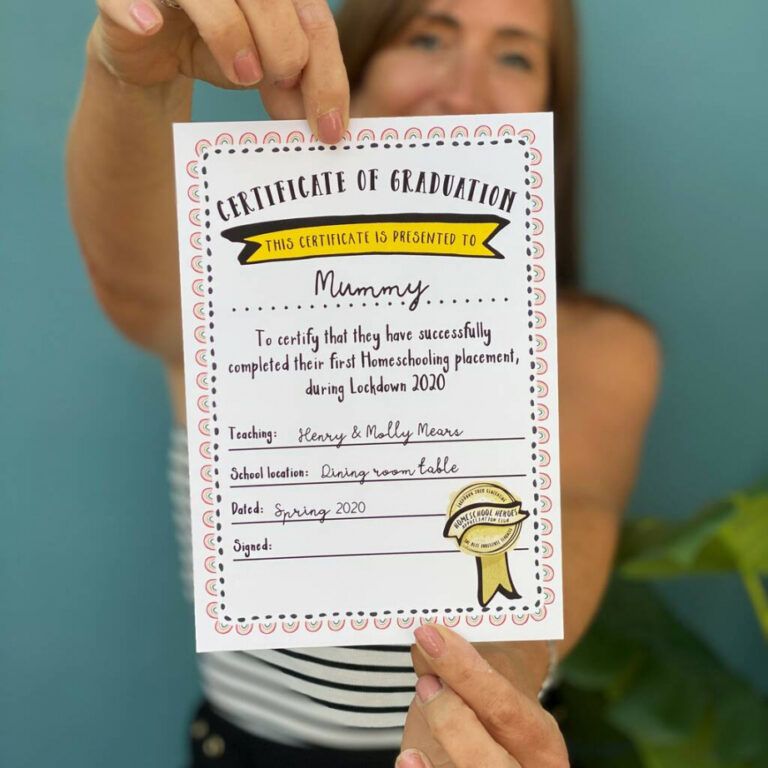 CERTIFICATE OF GRADUATION
THIS CERTIFICATE IS PRESENTED TO
Mummy
To certify that they have successfully
completed their first Homeschooling placement,
during Lockdown 2020
Teaching: Henry & Molly Mears
School location: Dining room table
Dated: Spring 2020
Signed:
HOMESCHOOL HEROES
APPRECIATION CLUB